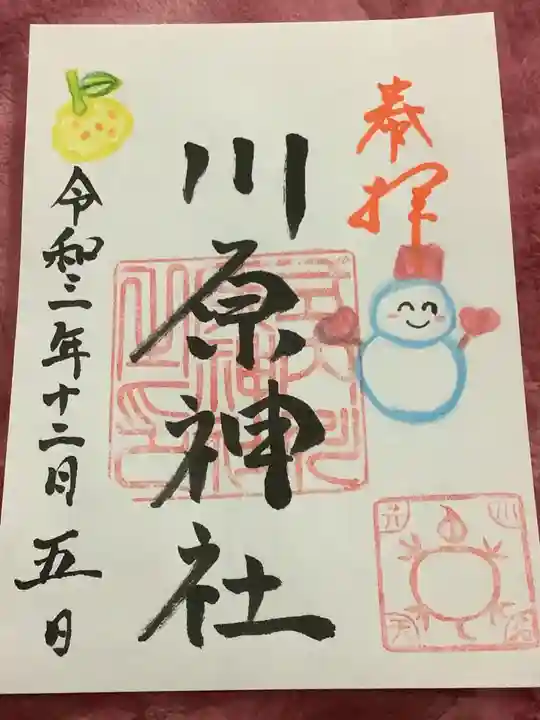 奉拝
川原神社
令和三年十二月五日